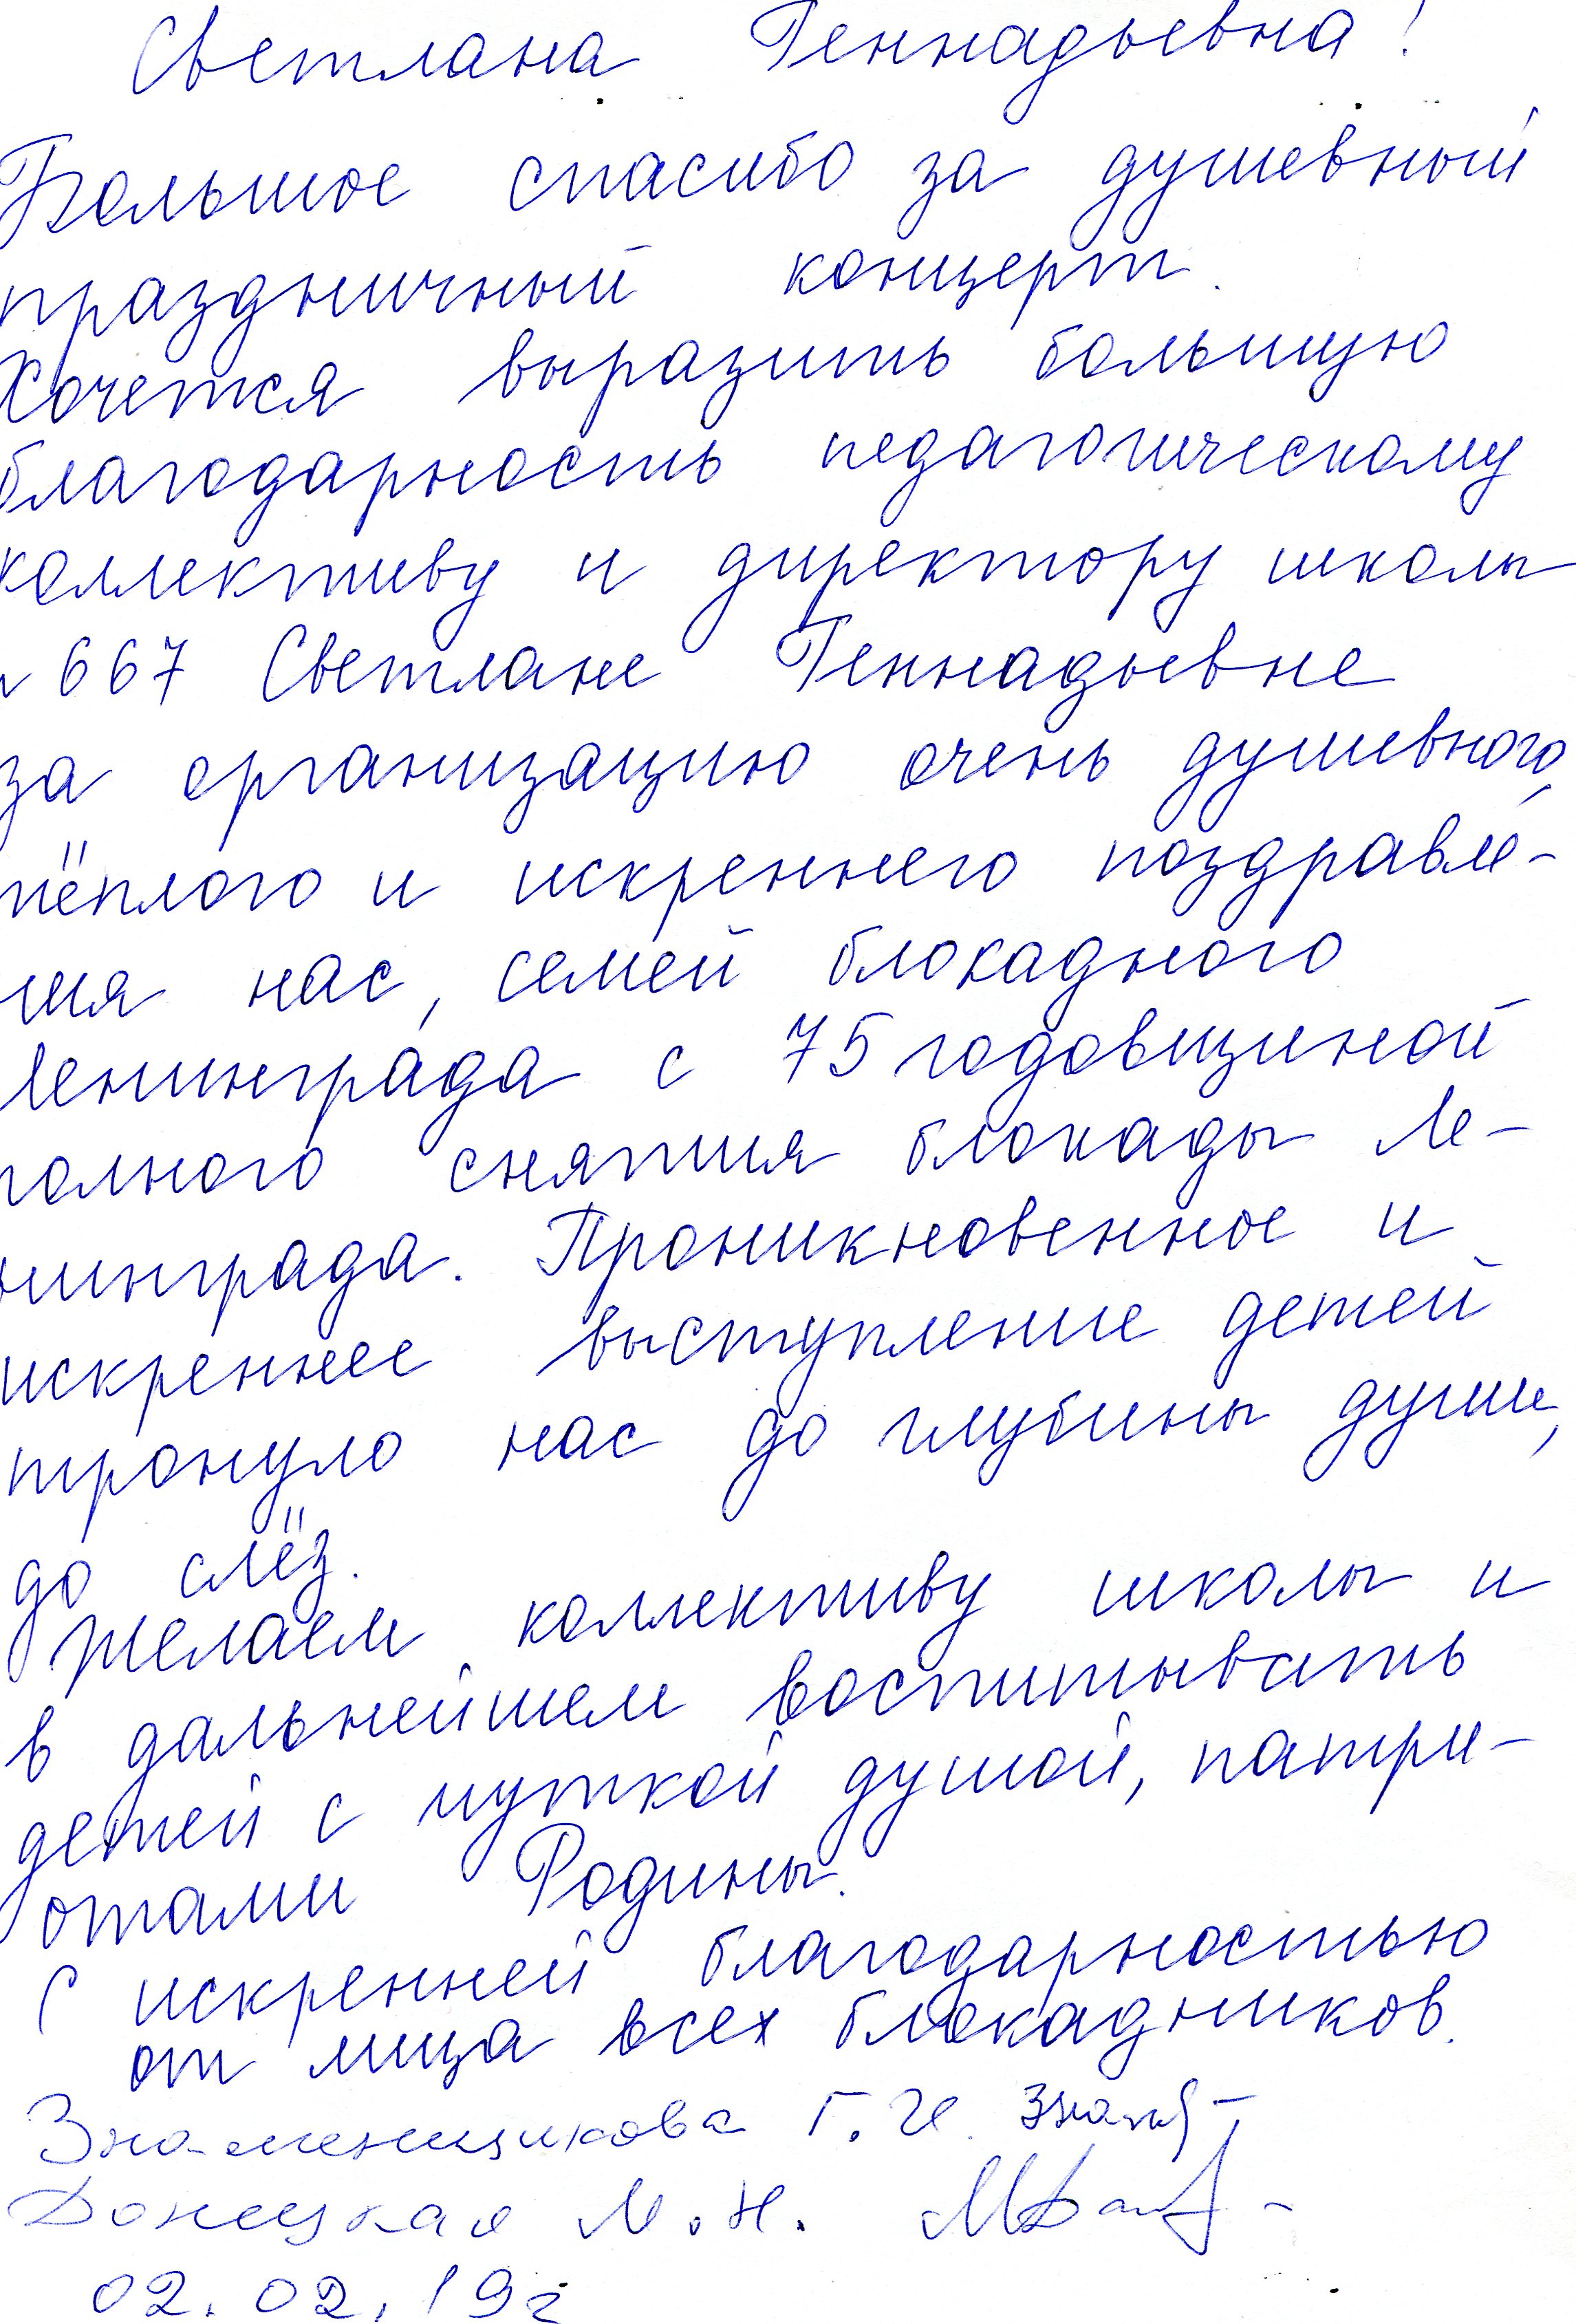 Светлана Геннадьевна!
Большое спасибо за душевный
праздничный концерт.
Хочется выразить большую
благодарность педагогическому
коллективу и директору школы
№ 667 Светлане Геннадьевне
за организацию очень душевного,
тёплого и искреннего поздравле-
ния нас, семей блокадного
Ленинграда с 75 годовщиной
полного снятия блокады Ле-
нинграда. Проникновенное и
искреннее выступление детей
тронуло нас до глубины души,
до слёз.
Желаем коллективу школы и
в дальнейшем воспитывать
детей с чуткой душой, патри-
отами Родины.
С искренней благодарностью
от лица всех блокадников.
Знаменщикова Г. И.
Донецкая М. Н.
02.02.19г